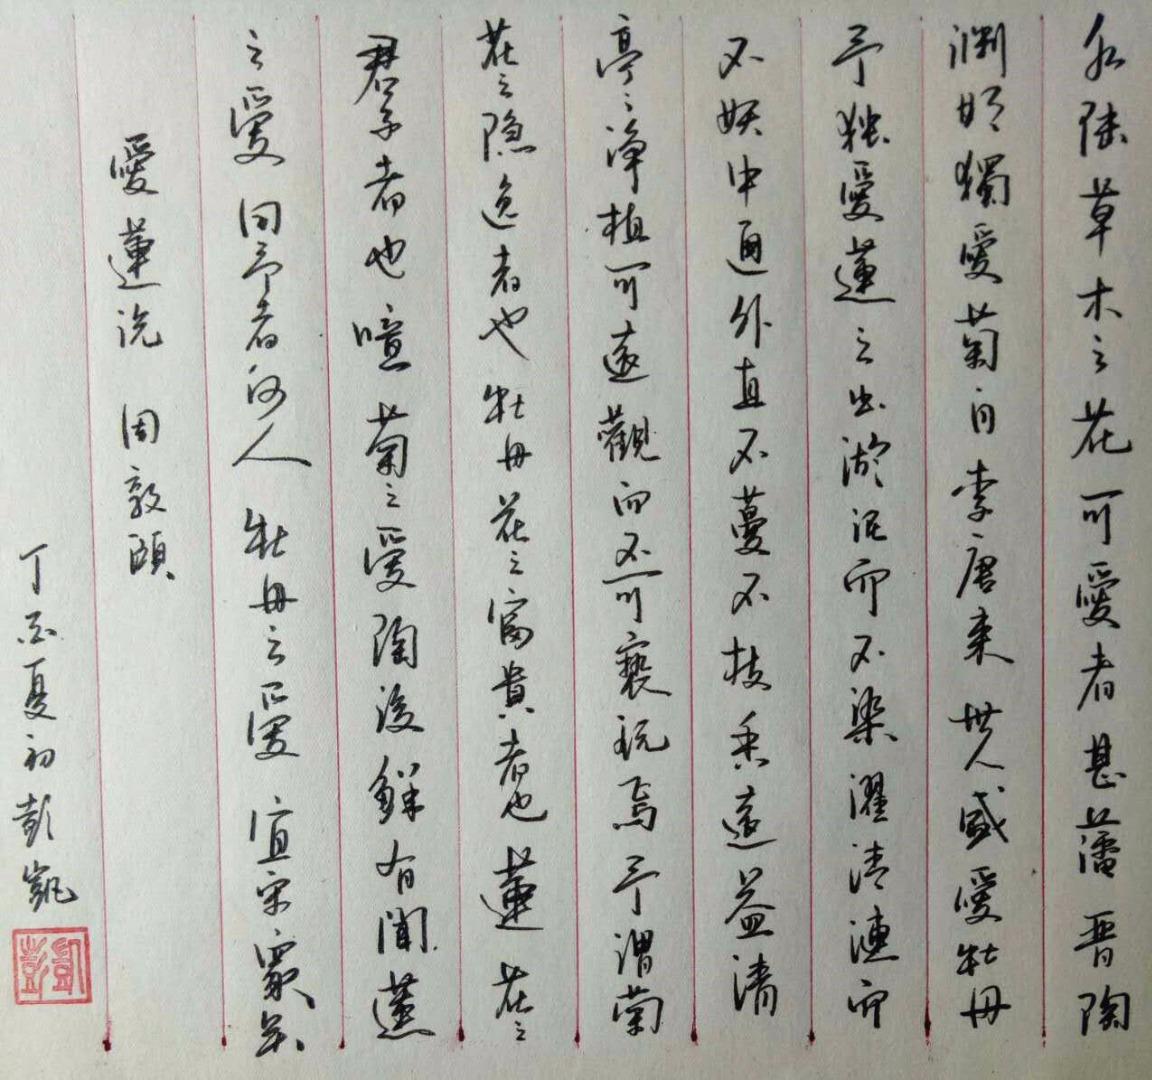 水陸草木之花可愛者甚蕃晋陶
渊明獨愛菊自李唐来世人盛愛牡丹
予独愛蓮之出淤泥而不染濯清漣而
不妖中通外直不蔓不枝香遠益清
亭亭净植可遠觀而不可褻玩焉予謂菊
花之隐逸者也牡丹花之富貴者也蓮花之
君子者也噫菊之愛陶後鮮有聞蓮
之愛同予者何人牡丹之愛宜乎衆矣
愛蓮说 周敦頤
丁酉夏初彭凱
彭凱